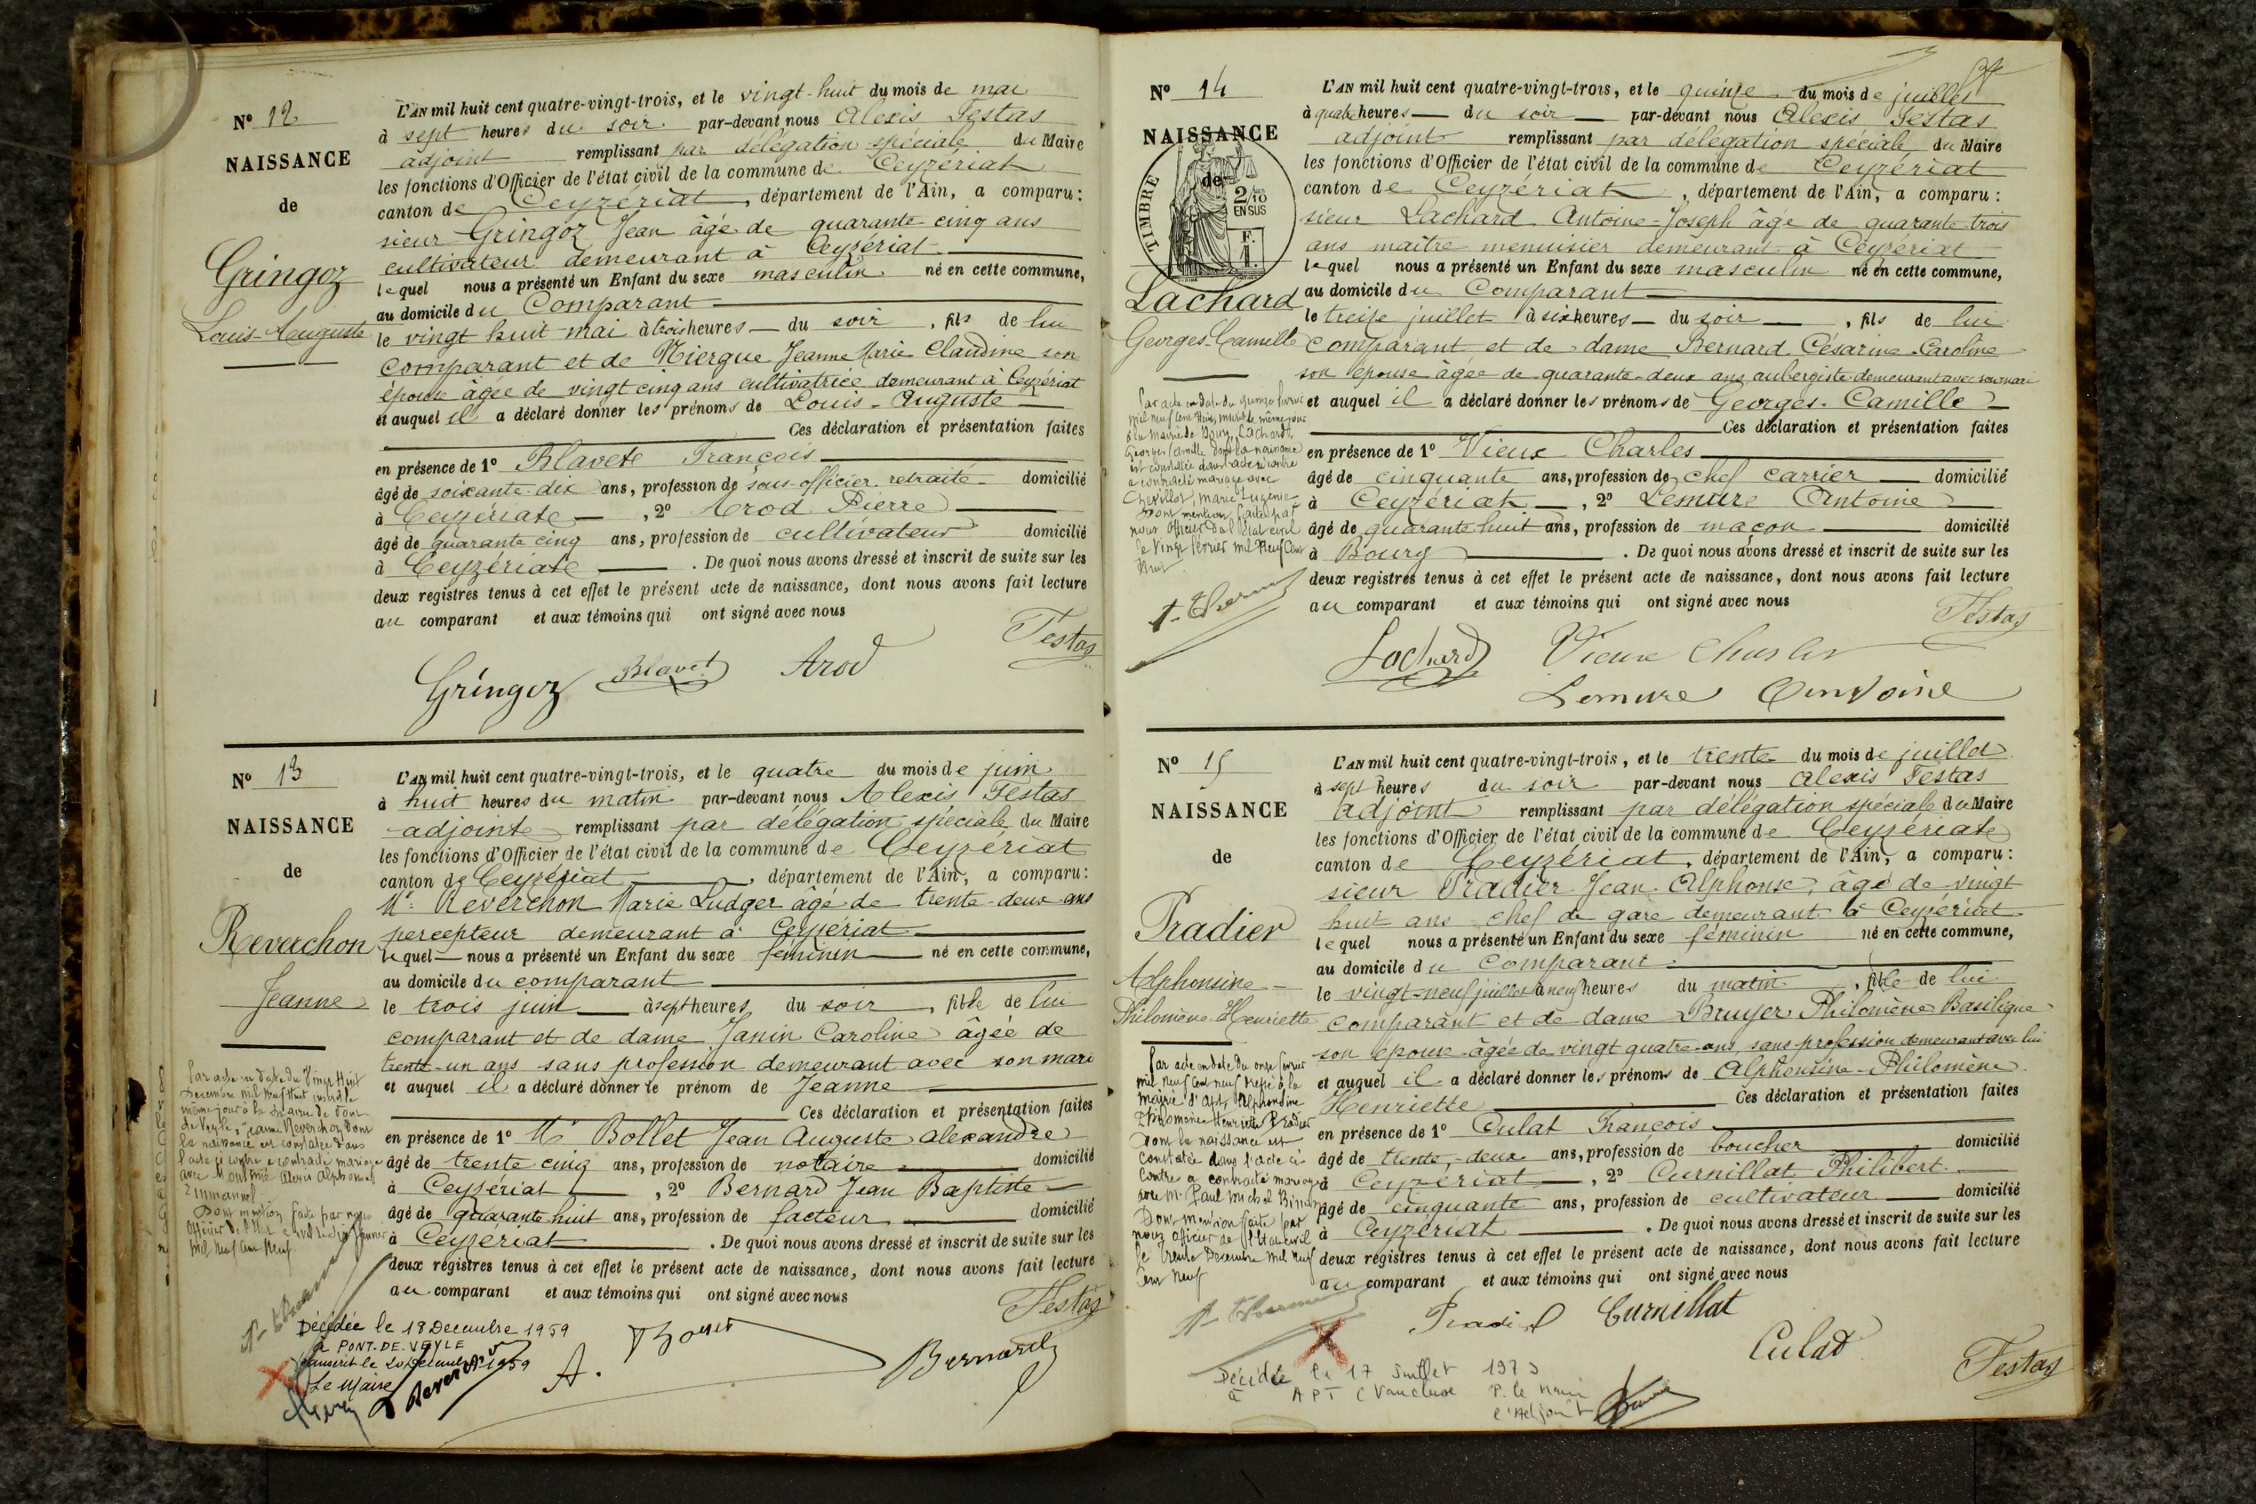 Nº 12
NAISSANCE
de
Gringoz
Louis-Auguste
L'AN mil huit cent quatre-vingt-trois, et le vingt-huit du mois de mai
à sept heures du soir par-devant nous Alexis Festas
adjoint remplissant par délégation spéciale du Maire
les fonctions d'Officier de l'état civil de la commune de Ceyzériat
canton de Ceyzériat, département de l'Ain, a comparu:
sieur Gringoz Jean âgé de quarante cinq ans
cultivateur demeurant à Ceyzériat
lequel nous a présenté un Enfant du sexe masculin né en cette commune,
au domicile du Comparant
le vingt huit mai à trois heures du soir, fils de lui
comparant et de Niergue Jeanne Marie Claudine son
épouse âgée de vingt cinq ans cultivatrice demeurant à Ceyzériat
et auquel il a déclaré donner les prénoms de Louis-Auguste
Ces déclaration et présentation faites
en présence de 1º Blavet François
âgé de soixante-dix ans, profession de sous-officier retraité domicilié
à Ceyzériat, 2º Arod Pierre
âgé de quarante cinq ans, profession de cultivateur domicilié
à Ceyzériat. De quoi nous avons dressé et inscrit de suite sur les
deux registres tenus à cet effet le présent acte de naissance, dont nous avons fait lecture
au comparant et aux témoins qui ont signé avec nous
Festas
Gringoz Blavet Arod
Nº 13
NAISSANCE
de
Reverchon
Jeanne
L'AN mil huit cent quatre-vingt-trois, et le quatre du mois de juin
à huit heures du matin par-devant nous Alexis Festas
adjoint remplissant par délégation spéciale du Maire
les fonctions d'Officier de l'état civil de la commune de Ceyzériat
canton de Ceyzériat, département de l'Ain, a comparu:
Mr Reverchon Marie Ludger âgé de trente-deux ans
percepteur demeurant à Ceyzériat
lequel nous a présenté un Enfant du sexe féminin né en cette commune,
au domicile du comparant
le trois juin à sept heures du soir, fille de lui
comparant et de dame Janin Caroline âgée de
trente-un ans sans profession demeurant avec son mari
et auquel il a déclaré donner le prénom de Jeanne
Ces déclaration et présentation faites
en présence de 1º Mr Bollet Jean Auguste Alexandre
âgé de trente cinq ans, profession de notaire domicilié
à Ceyzériat, 2º Bernard Jean Baptiste
âgé de quarante huit ans, profession de facteur domicilié
à Ceyzériat. De quoi nous avons dressé et inscrit de suite sur les
deux registres tenus à cet effet le présent acte de naissance, dont nous avons fait lecture
au comparant et aux témoins qui ont signé avec nous
Festas
Par acte en date du Vingt Huit
Décembre mil neuf huit inscrit le
même jour à la Mairie de Pont
de Veyle, Jeanne Reverchon dont
la naissance est constatée dans
l'acte ci contre a contracté mariage
avec Alexis Alphonse
Emmanuel
Dont mention faite par nous
Officier de l'état civil Janvier
mil neuf cent neuf
Décédée le 18 Decembre 1959
à PONT-DE-VEYLE
transcrit le 20 Decembre 1959
Le Maire
Reverchon
A. Bollet
Bernard
Nº 14
NAISSANCE
de
TIMBRE
2/10
EN SUS
F.
1.
Lachard
Georges-Camille
L'AN mil huit cent quatre-vingt-trois, et le quinze du mois de juillet
à quatre heures du soir par-devant nous Alexis Festas
adjoint remplissant par délégation spéciale du Maire
les fonctions d'Officier de l'état civil de la commune de Ceyzériat
canton de Ceyzériat, département de l'Ain, a comparu:
sieur Lachard Antoine-Joseph âgé de quarante trois
ans maître menuisier demeurant à Ceyzériat
lequel nous a présenté un Enfant du sexe masculin né en cette commune,
au domicile du Comparant
le treize juillet à six heures du soir, fils de lui
comparant et de dame Bernard Césarine-Caroline
son épouse âgée de quarante-deux ans aubergiste demeurant avec son mari
et auquel il a déclaré donner les prénoms de Georges-Camille
Ces déclaration et présentation faites
en présence de 1º Vieux Charles
âgé de cinquante ans, profession de chef carrier domicilié
à Ceyzériat, 2º Lemure Antoine
âgé de quarante huit ans, profession de maçon domicilié
à Bourg. De quoi nous avons dressé et inscrit de suite sur les
deux registres tenus à cet effet le présent acte de naissance, dont nous avons fait lecture
au comparant et aux témoins qui ont signé avec nous
Par acte en date du quinze février
mil neuf cent huit, inscrit le même jour
à la mairie de Lachard
Georges Camille dont la naissance
est constatée dans l'acte ci contre
a contracté mariage avec
Chevillot, Marie Eugénie
Dont mention faite par
nous Officier de l'état civil
le Vingt février mil neuf cent
huit
Festas
Lachard Vieux Charles
Lemure Antoine
Nº 15
NAISSANCE
de
Pradier
Alphonsine
Philomène-Henriette
L'AN mil huit cent quatre-vingt-trois, et le trente du mois de juillet
à sept heures du soir par-devant nous Alexis Festas
adjoint remplissant par délégation spéciale du Maire
les fonctions d'Officier de l'état civil de la commune de Ceyzériat
canton de Ceyzériat, département de l'Ain, a comparu:
sieur Pradier Jean-Alphonse, âgé de vingt
huit ans chef de gare demeurant à Ceyzériat
lequel nous a présenté un Enfant du sexe féminin né en cette commune,
au domicile du Comparant
le vingt-neuf juillet à neuf heures du matin, fille de lui
comparant et de dame Bruyer Philomène Basilique
son épouse âgée de vingt quatre ans, sans profession demeurant avec lui
et auquel il a déclaré donner les prénoms de Alphonsine-Philomène
Henriette Ces déclaration et présentation faites
en présence de 1º Culat François
âgé de trente-deux ans, profession de boucher domicilié
à Ceyzériat, 2º Curnillat Philibert
âgé de cinquante ans, profession de cultivateur domicilié
à Ceyzériat. De quoi nous avons dressé et inscrit de suite sur les
deux registres tenus à cet effet le présent acte de naissance, dont nous avons fait lecture
au comparant et aux témoins qui ont signé avec nous
Par acte en date du onze février
mil neuf cent neuf à la
mairie d'Apt, Alphonsine
Philomène Henriette Pradier
dont la naissance est
constatée dans l'acte ci
contre a contracté mariage
avec Mr Paul Michel
Dont mention faite par
nous officier de l'Etat civil
le Trente Décembre mil neuf
cent neuf
Pradier Curnillat
Culat
Festas
Décédée le 17 Juillet 1973
à APT (Vaucluse P. le Maire
l'Adjoint